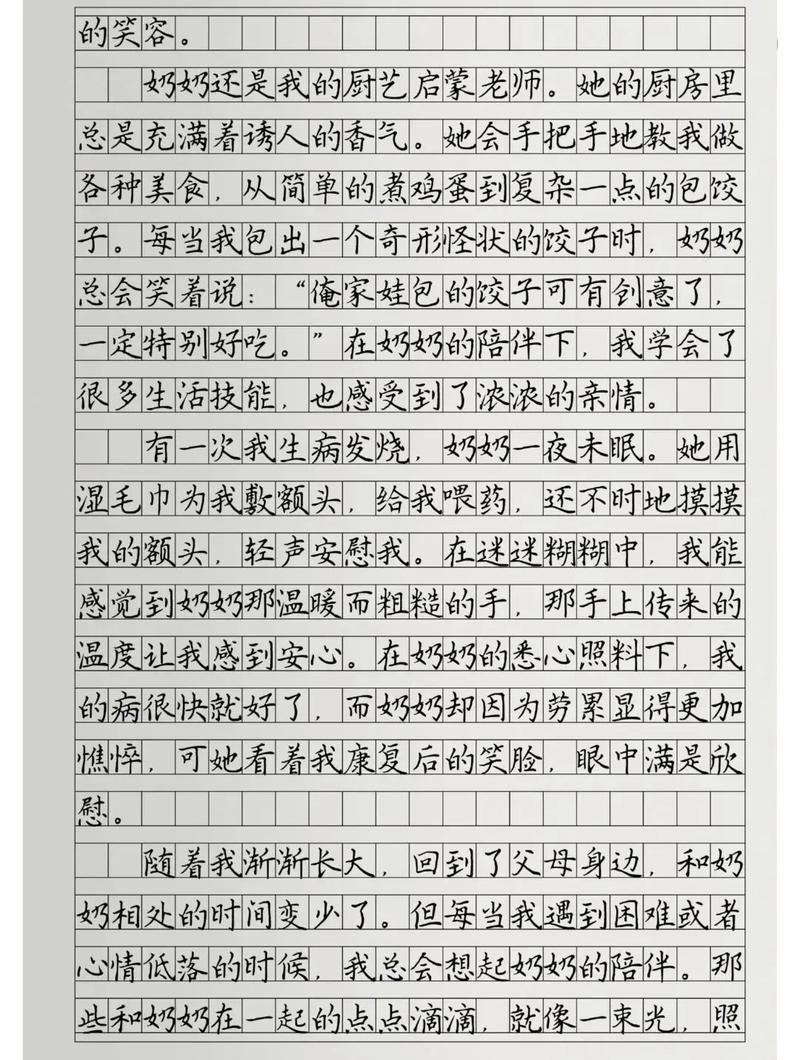 的笑容。
奶奶还是我的厨艺启蒙老师。她的厨房里
总是充满着诱人的香气。她会手把手地教我做
各种美食，从简单的煮鸡蛋到复杂一点的包饺
子。每当我包出一个奇形怪状的饺子时，奶奶
总会笑着说：“俺家娃包的饺子可有创意了，
一定特别好吃。”在奶奶的陪伴下，我学会了
很多生活技能，也感受到了浓浓的亲情。
有一次我生病发烧，奶奶一夜未眠。她用
湿毛巾为我敷额头，给我喂药，还不时地摸摸
我的额头，轻声安慰我。在迷迷糊糊中，我能
感觉到奶奶那温暖而粗糙的手，那手上传来的
温度让我感到安心。在奶奶的悉心照料下，我
的病很快就好了，而奶奶却因为劳累显得更加
憔悴，可她看着我康复后的笑脸，眼中满是欣
慰。
随着我渐渐长大，回到了父母身边，和奶
奶相处的时间变少了。但每当我遇到困难或者
心情低落的时候，我总会想起奶奶的陪伴。那
些和奶奶在一起的点点滴滴，就像一束光，照